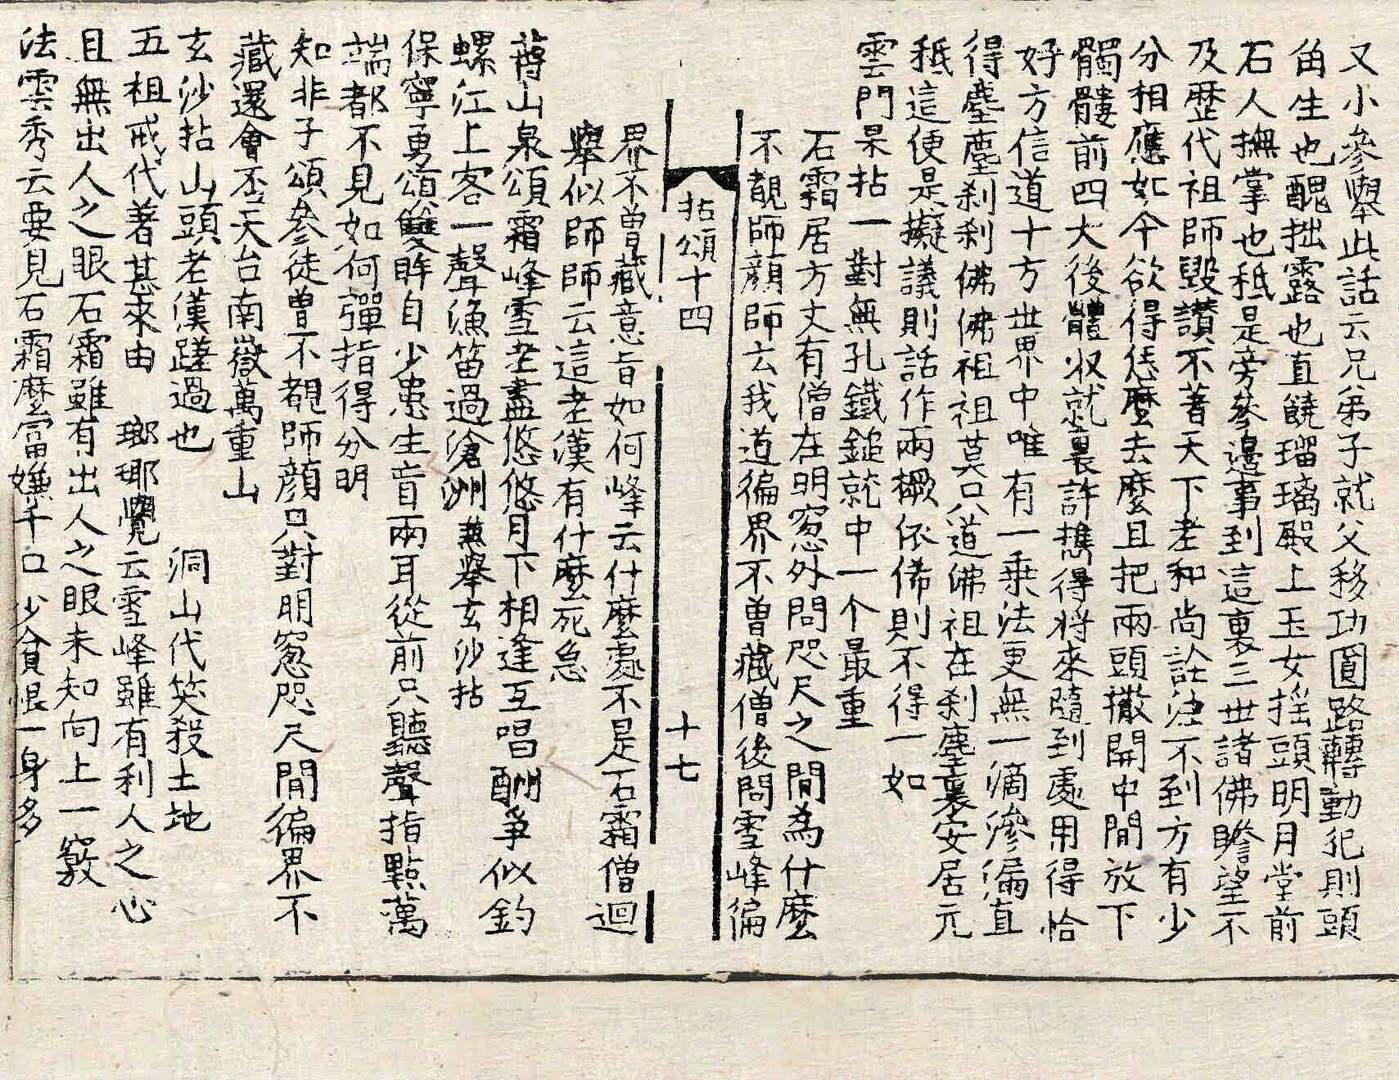 又小參擧此話云兄弟子就父移功圓路轉動犯則頭
角生也醜拙露也直饒瑠璃殿上玉女揺頭明月堂前
石人撫掌也秪是旁叅邊事到這裏三世諸佛瞻望不
及歴代祖師毀讃不著天下老和尚詮注不到方有少
分相應如今欲得恁麼去麼且把兩頭撒開中間放下
髑髏前四大後體収就裏許擕得將來隨到處用得恰
好方信道十方世界中唯有一乗法更無一滴滲漏直
得塵塵刹刹佛佛祖祖莫只道佛祖在刹塵裏安居元
秪這便是擬議則話作兩橛依俙則不得一如
雲門杲拈一對無孔鐵鎚就中一个最重
石霜居方丈有僧在明窓外問咫尺之間為什麼
不覩師顔師云我道徧界不曽藏僧後問雪峰徧
拈頌十四
十七
界不曽藏意旨如何峰云什麼處不是石霜僧迴
擧似師師云這老漢有什麼死急
蔣山泉頌霜峰雪老盡悠悠月下相逢互唱酬爭似釣
螺江上客一聲漁笛過滄洲兼擧玄沙拈
保寧勇頌雙眸自少患生盲兩耳從前只聽聲指點萬
端都不見如何彈指得分明
知非子頌參徒曽不覩師顔只對明窓咫尺間徧界不
藏還會否天台南嶽萬重山
玄沙拈山頭老漢蹉過也 洞山代笑殺土地
五祖戒代著甚來由 瑯瑘覺云雪峰雖有利人之心
且無出人之眼石霜雖有出人之眼未知向上一竅
法雲秀云要見石霜麼富嫌千口少貧恨一身多